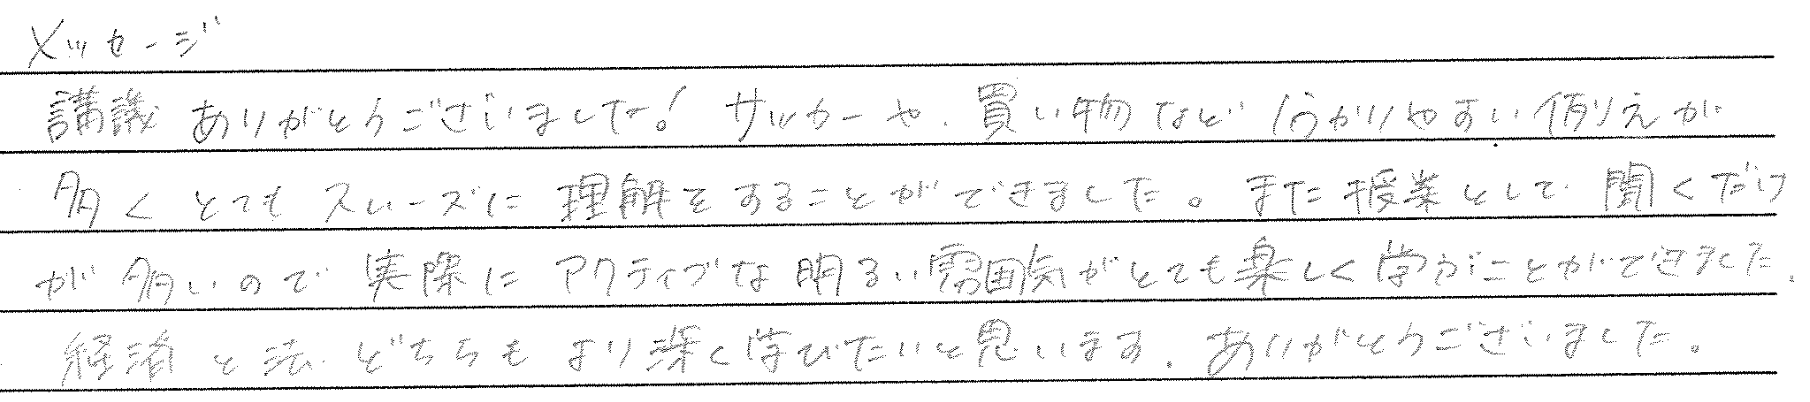 メッセージ
講議ありがとうございました！サッカーや、買い物など分かりやすい例えが
多くとてもスムーズに理解をすることができました。また授業として聞くだけ
が多いので実際にアクティブな明るい雰囲気がとても楽しく学ぶことができました。
経済と法どちらもより深く学びたいと思います。ありがとうございました。